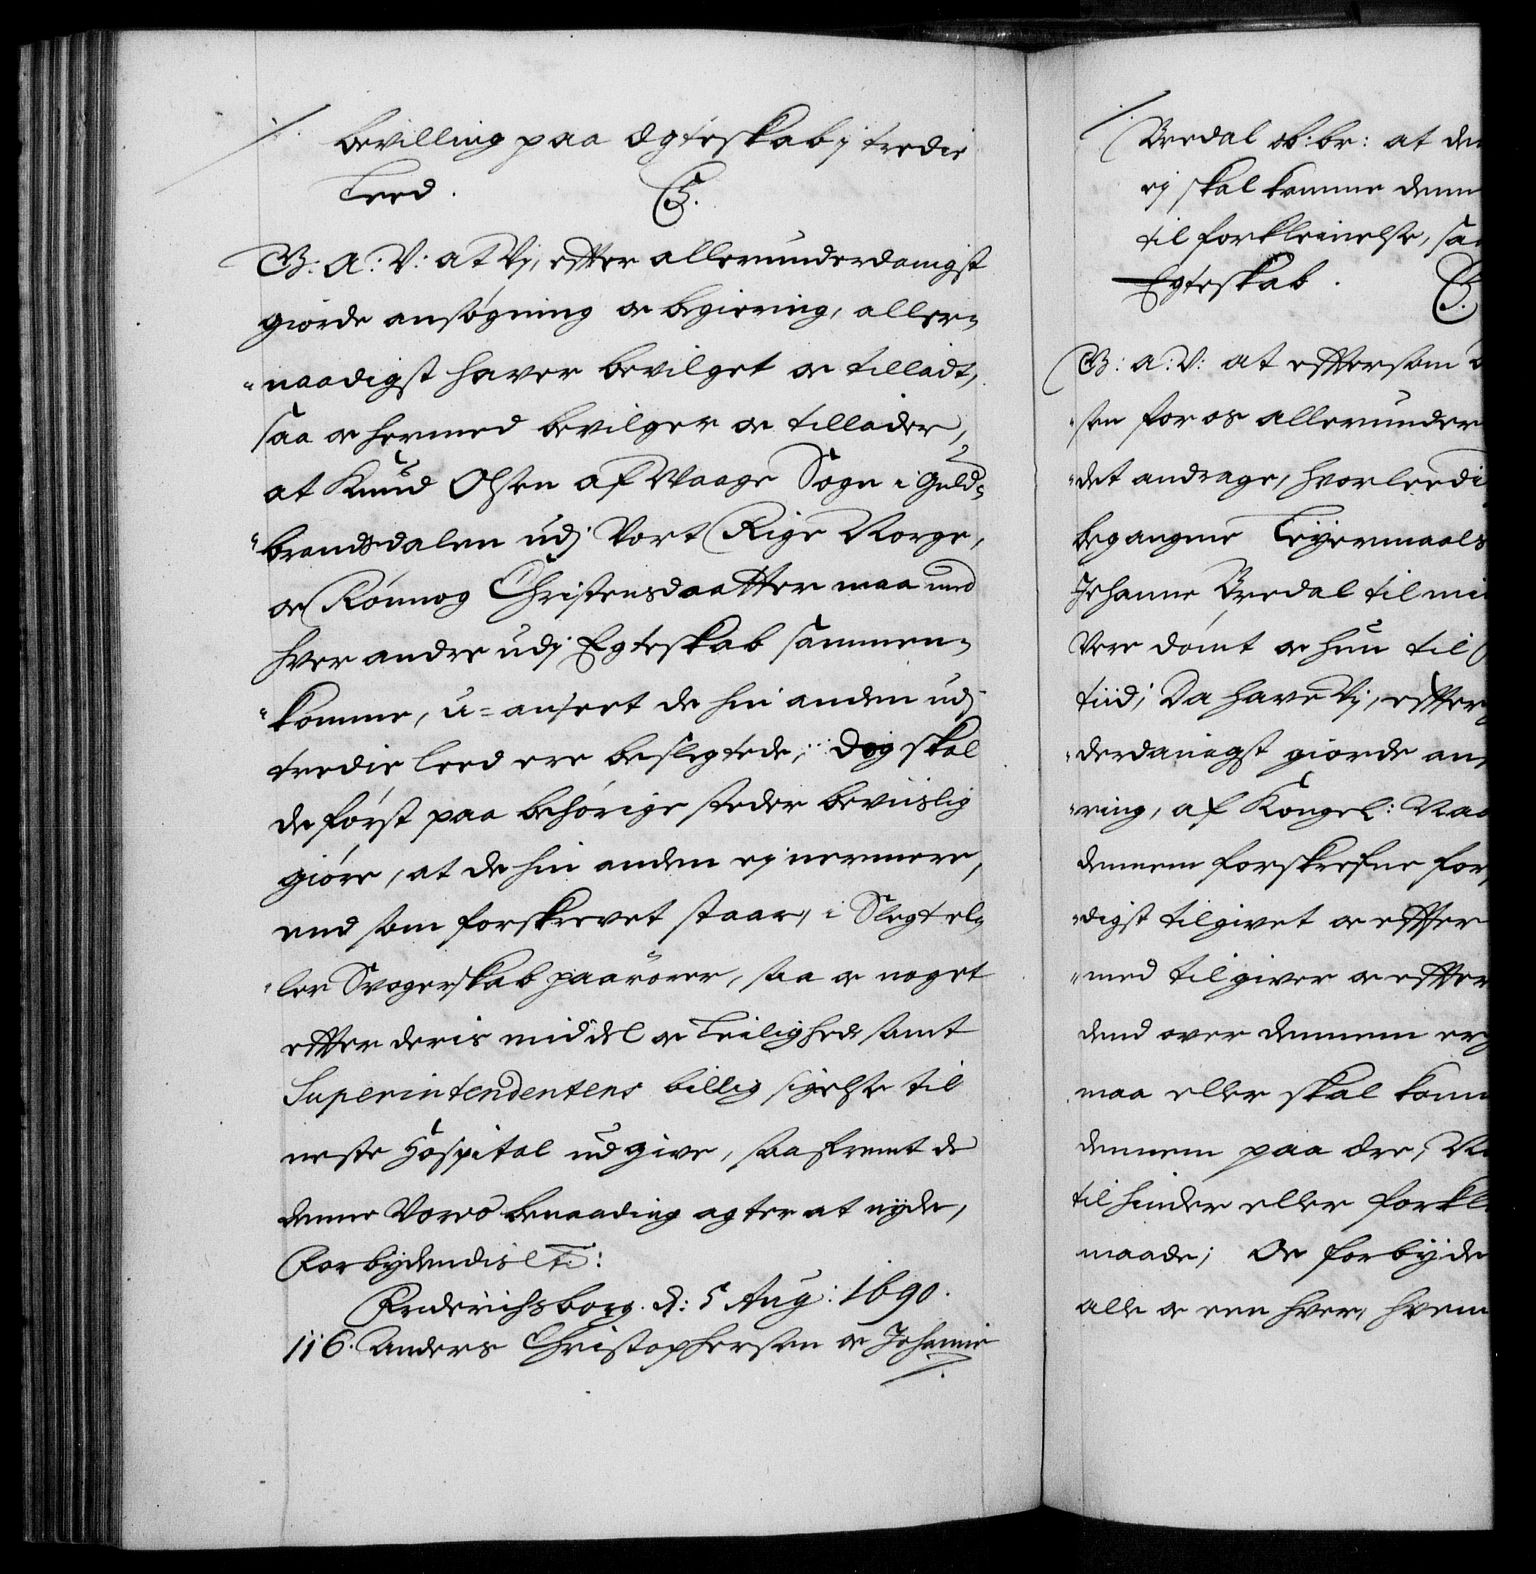 bevilling paa ægteskab j tredie
Leed. C5.
G: A: V: at Vj, efter allerunderdanigst
giorde ansøgning oc begiering, aller-
naadigst haver bevilget oc tilladt,
saa oc hermed bevilger oc tillader,
at Knud Olsen af Waage Sogn i Guld-
brandsdalen udj Vort Rige Norge,
oc Rönnog Christensdaatter maa med
hver andre udj Egteskab sammen-
komme, u-anseet de hin anden udj
tredie leed ere beslegtede; dog skal
de først paa behörige steder beviislig
giöre, at de hin anden ej nermere,
end som forskrevet staar, i Slegt el-
ler Svogerskab paarörer, saa oc noget
efter deris middel oc Leilighed samt
Superintendentens billig sigelse til
neste Hospital udgive, saafremt de
denne Voris benaading agter at nyde,
Forbydendis etc:
Friderichsborg. d: 5 Aug: 1690.
116. Anders Christophersen oc Johanne
Bredal ob: br: at den
ej skal komme denn
til forkleinelse, saa
Egteskab. C5.
G: A: V: at eftersom
sen for os allerunder
det andrage, hvorledi
begangne Leyermaals
Johanne Bredal til mi
Vere dömt oc hun til
tiid; Da have Vj, efter
derdanigst giorde an
ring, af Kongel: Naa
dennem forskrefne for
digst tilgivet oc efter
med tilgiver oc efter
dend over dennem erg
maa eller skal kom
dennem paa ære, Na
til hinder eller forkl
maade; Oc forbyde
alle oc een hver, hvem